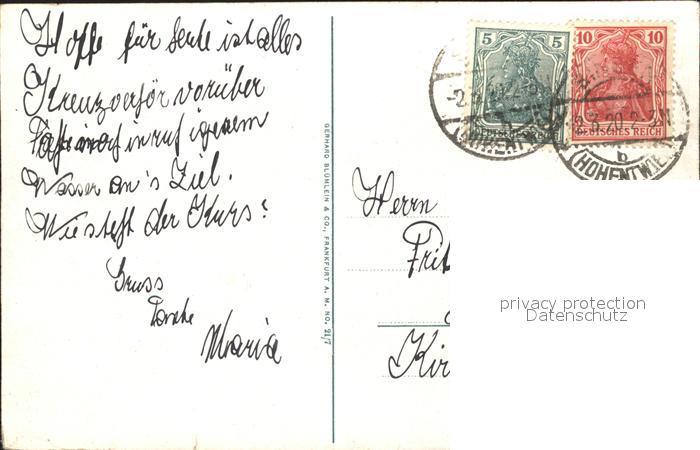 Hoffe für heute ist alles
Kreuzverhör vorüber
in ruhigerem
Wasser an's Ziel.
Wie steht der Kurs?
Gruss
Tante
Maria
GERHARD BLÜMLEIN & CO., FRANKFURT A. M. NO. 21/7
5 5
DEUTSCHES REICH
10 10
DEUTSCHES REICH
3.20 2-3N
b
(HOHENTWIEL)
Herrn
Frit
Kir
privacy protection
Datenschutz